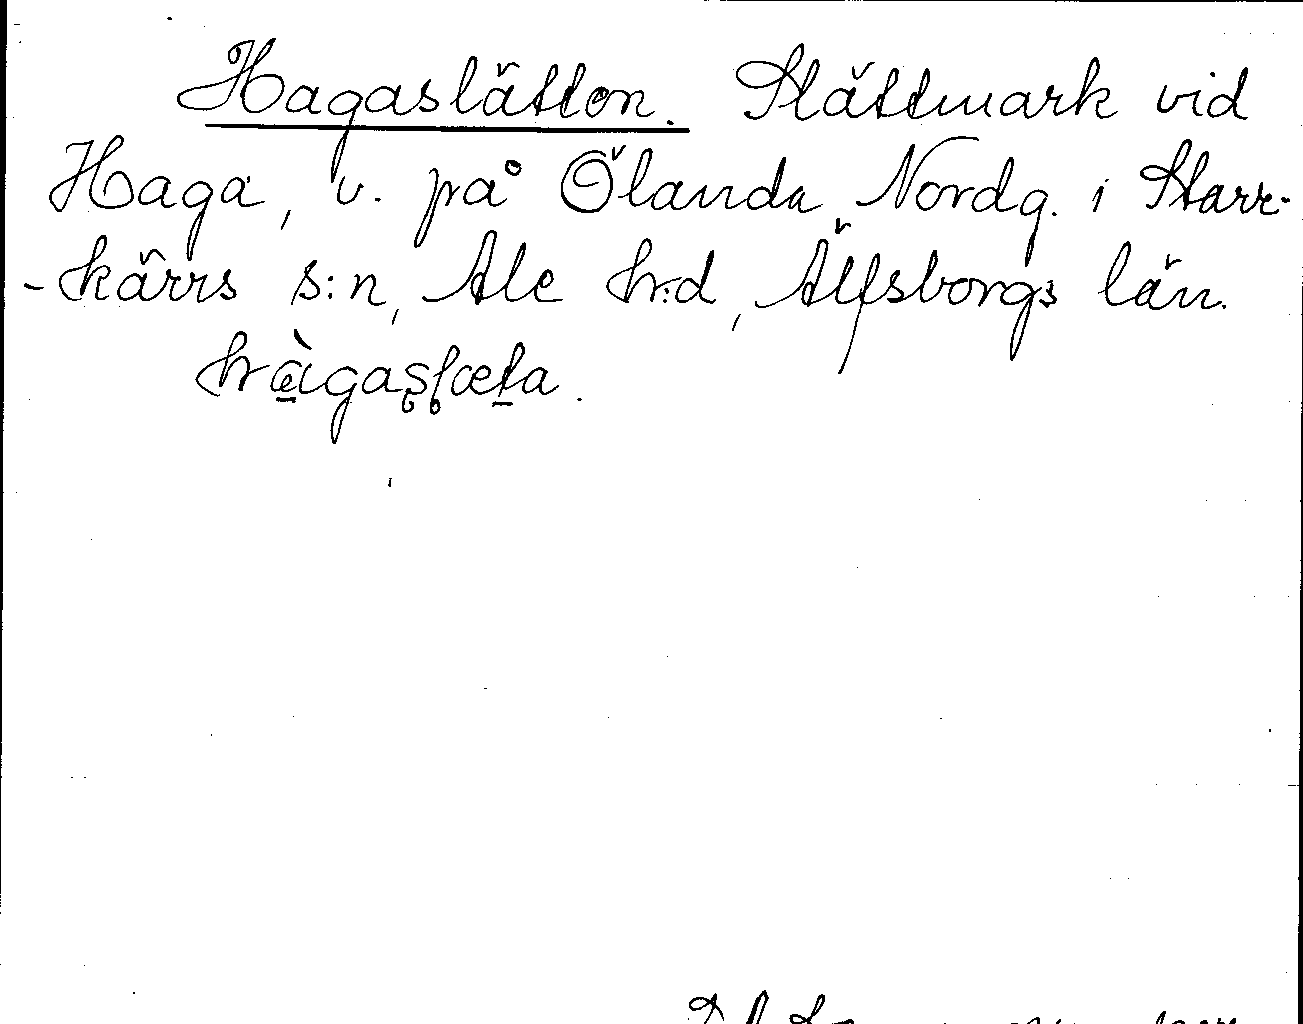 Hagaslätten. Slättmark vid
Haga, u. på Ölanda Nordg. i Starr-
-kärrs s:n, Ale h:d, Älfsborgs län.
hàgaslæta.